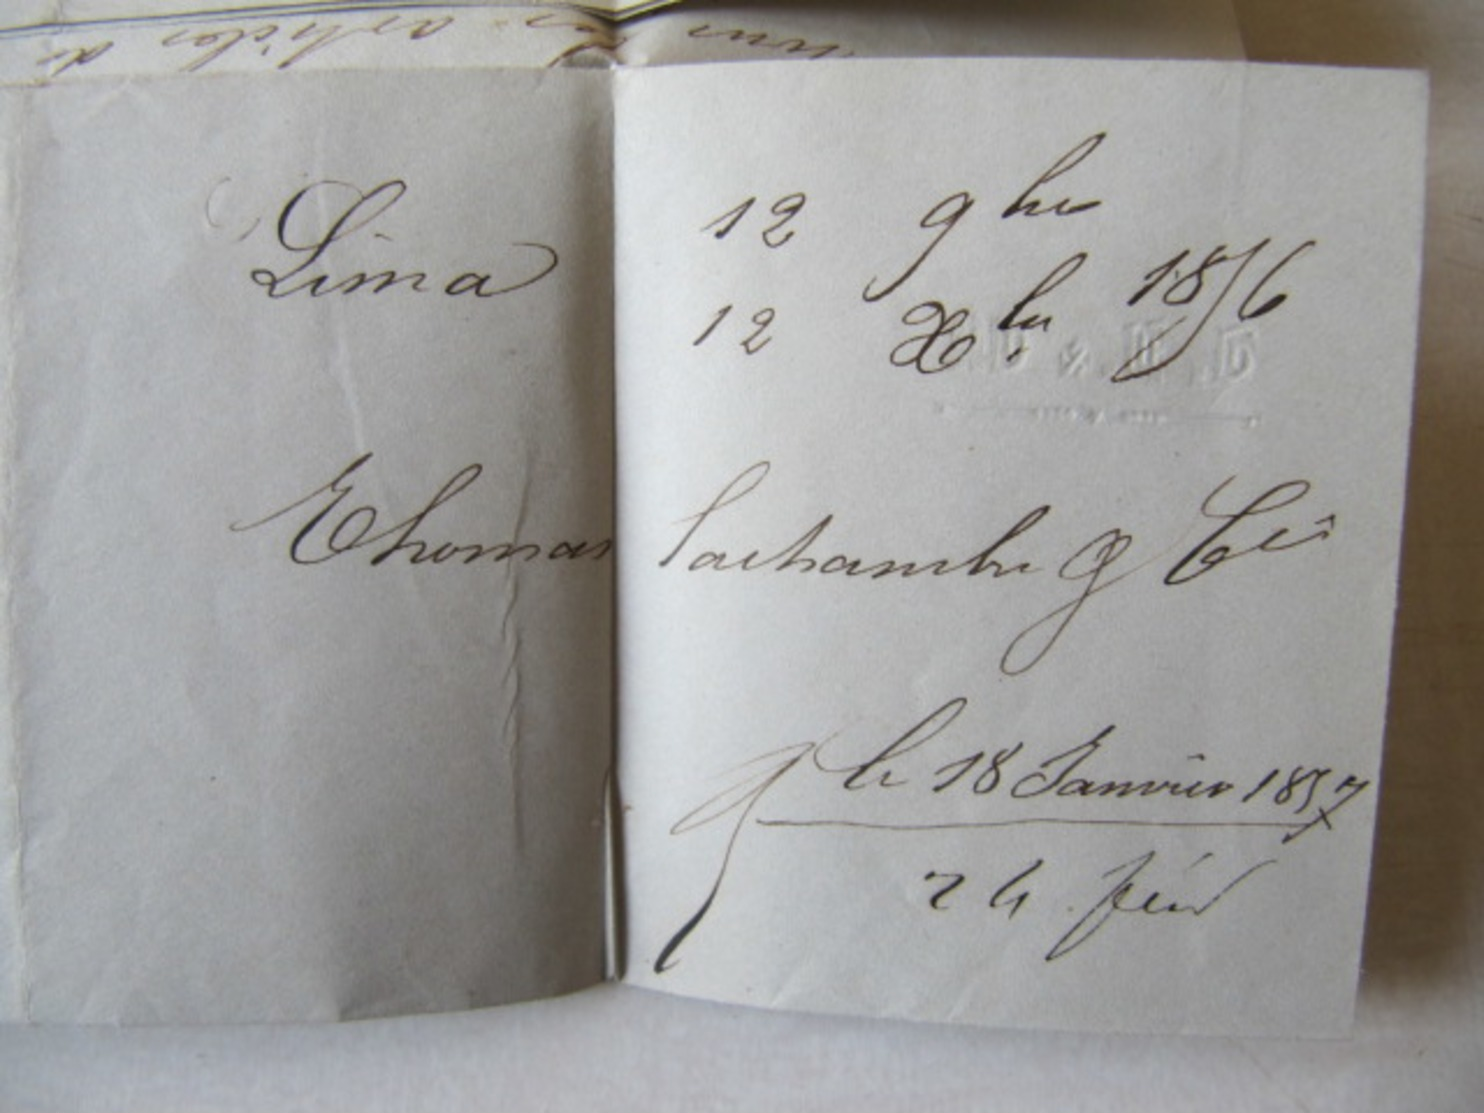 articles de
Lima
12 9bre
12 Xbre 1856
Thomas Lachambre & Cie
R le 18 Janvier 1857
24 fév